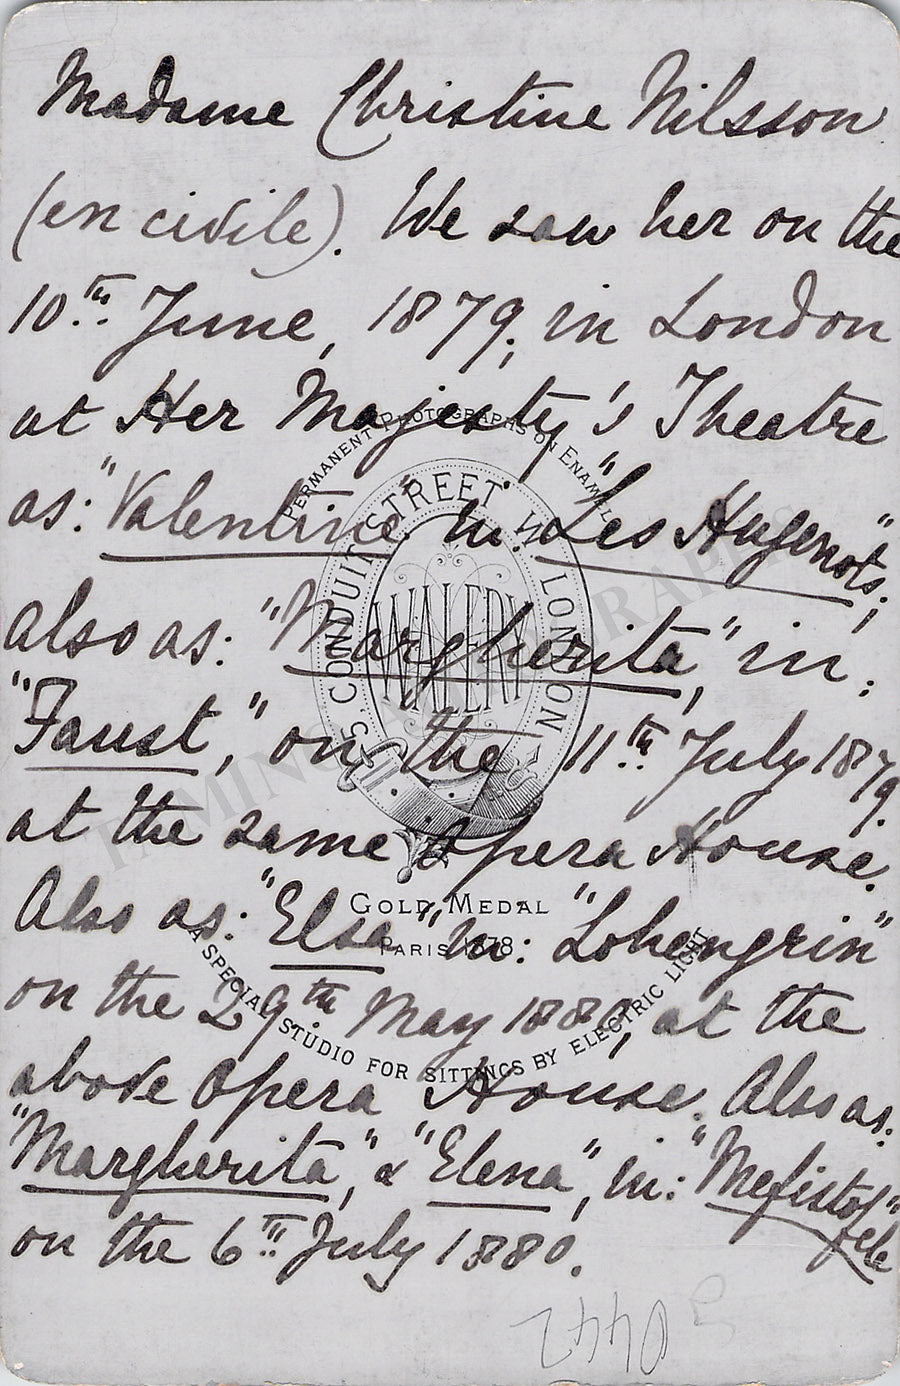 Madame Christine Nilsson
(en civile). We saw her on the
10th. June, 1879, in London
at Her Majesty's Theatre
as: "Valentine" in: "Les Hugenots";
also as: "Margherita", in:
"Faust," on the 11th. July 1879.
at the same Opera House.
Also as: "Elsa" in: "Lohengrin"
on the 29th. May 1880, at the
above Opera House. Also as:
"Margherita", & "Elena", in: "Mefistofele"
on the 6th. July 1880.
PERMANENT PHOTOGRAPHS ON ENAMEL
5, CONDUIT STREET W LONDON
WALERY
GOLD MEDAL
PARIS 1878
A SPECIAL STUDIO FOR SITTINGS BY ELECTRIC LIGHT
TAMINO AUTOGRAPHS